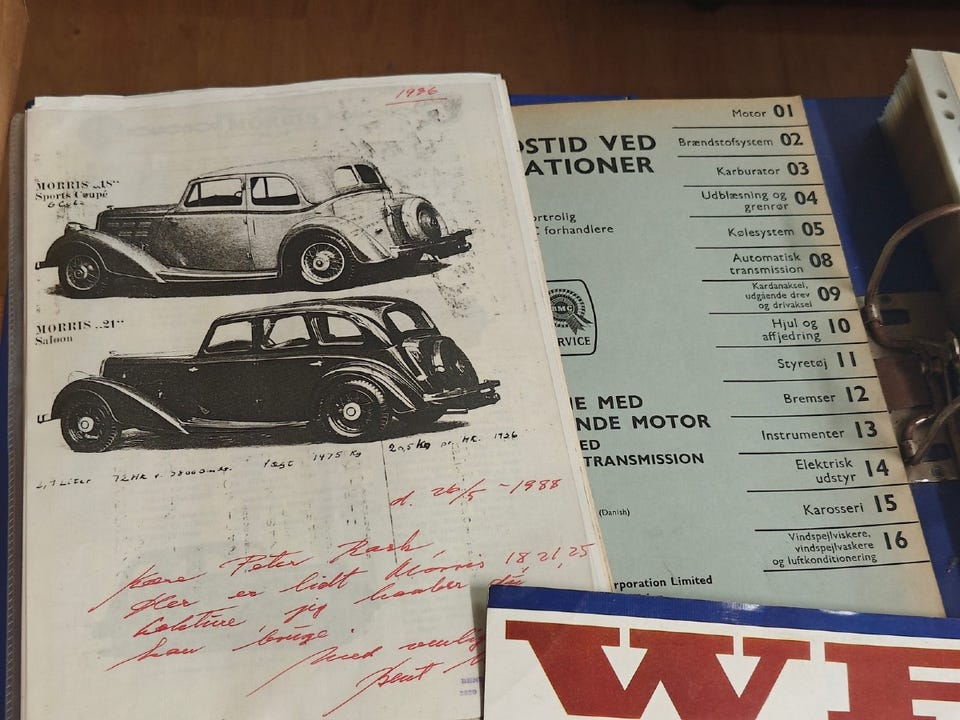 1936
MORRIS „18"
Sports Coupé
6 Cyl.
MORRIS „21"
Saloon
2,7 Liter 72 HK v. 3800 omdr. Vægt 1475 Kg 20,5 Kg pr. HK. 1936
d. 26/5 - 1988
Kære Peter Rask,
Her er lidt Morris 18, 21, 25
lekture jeg haaber du
kan bruge.
Med venlig
DSTID VED
ATIONER
ortrolig
C forhandlere
BMC
SERVICE
NE MED
NDE MOTOR
ED
TRANSMISSION
(Danish)
rporation Limited
Motor 01
Brændstofsystem 02
Karburator 03
Udblæsning og
grenrør 04
Kølesystem 05
Automatisk
transmission 08
Kardanaksel,
udgående drev
og drivaksel 09
Hjul og
affjedring 10
Styretøj 11
Bremser 12
Instrumenter 13
Elektrisk
udstyr 14
Karosseri 15
Vindspejlviskere,
vindspejlvaskere
og luftkonditionering 16
WE